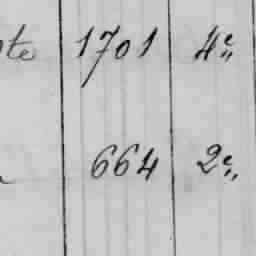 te 1701 4e„
664 2e„